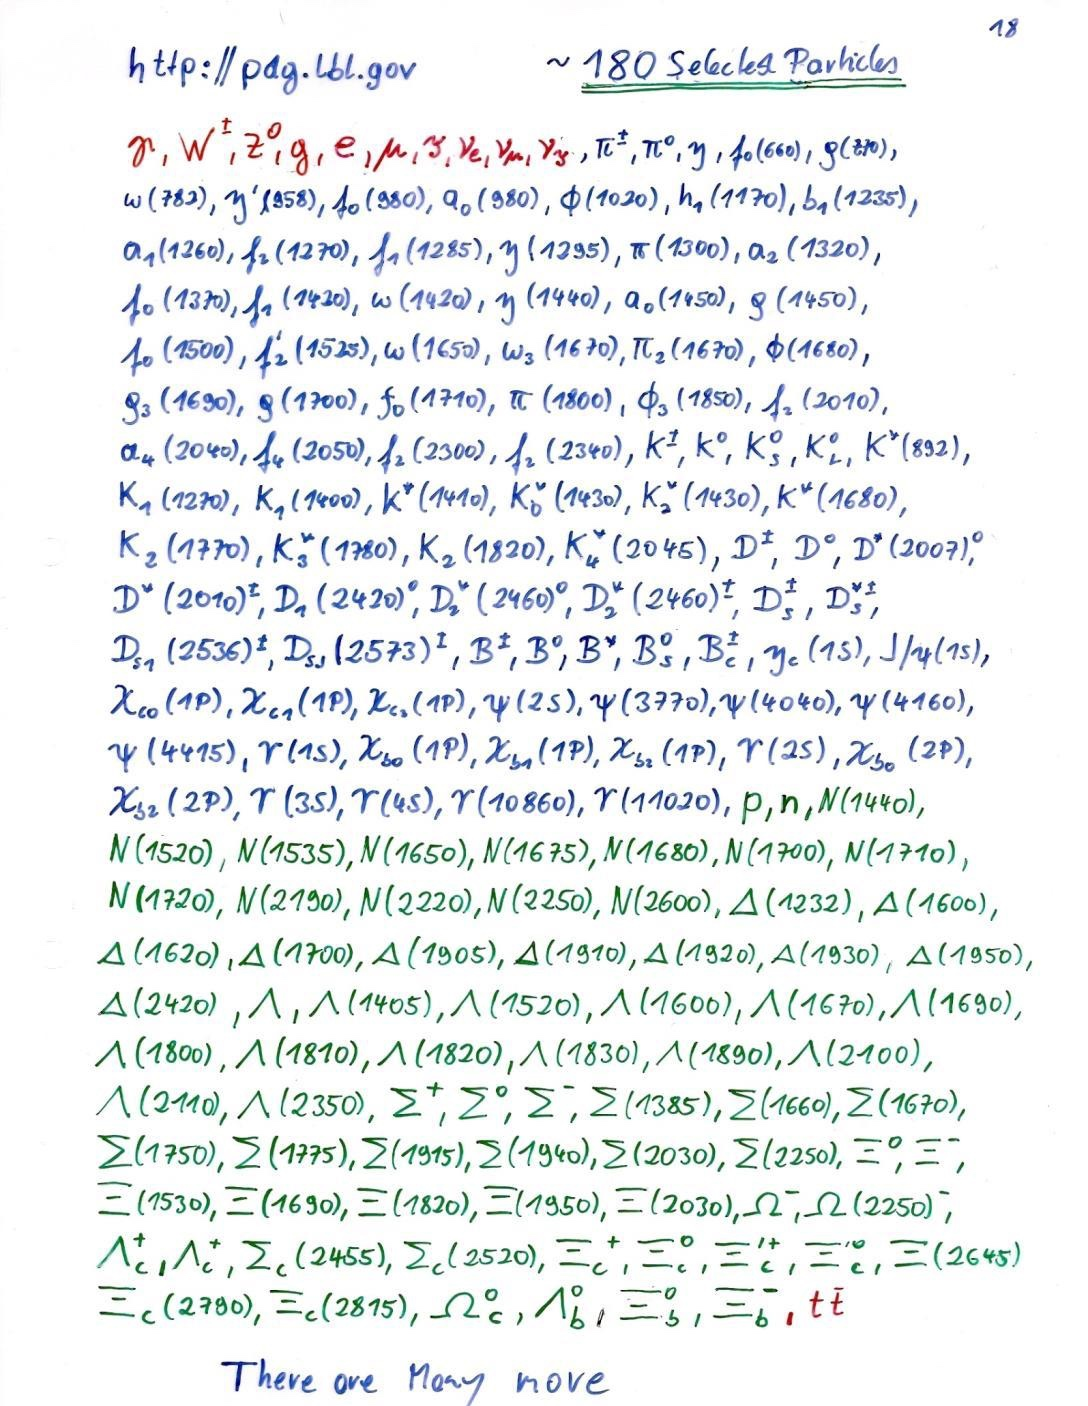 18
http://pdg.lbl.gov ~ 180 Selected Particles
γ, W±, Z⁰, g, e, μ, τ, νe, νμ, ντ, π±, π⁰, η, f₀(660), ρ(770),
ω(782), η′(958), f₀(980), a₀(980), ϕ(1020), h₁(1170), b₁(1235),
a₁(1260), f₂(1270), f₁(1285), η(1295), π(1300), a₂(1320),
f₀(1370), f₁(1420), ω(1420), η(1440), a₀(1450), ρ(1450),
f₀(1500), f₂′(1525), ω(1650), ω₃(1670), π₂(1670), ϕ(1680),
ρ₃(1690), ρ(1700), f₀(1710), π(1800), ϕ₃(1850), f₂(2010),
a₄(2040), f₄(2050), f₂(2300), f₂(2340), K±, K⁰, K⁰s, K⁰L, K*(892),
K₁(1270), K₁(1400), K*(1410), K₀*(1430), K₂*(1430), K*(1680),
K₂(1770), K₃*(1780), K₂(1820), K₄*(2045), D±, D⁰, D*(2007)⁰,
D*(2010)±, D₁(2420)⁰, D₂*(2460)⁰, D₂*(2460)±, Ds±, Ds*±,
Ds1(2536)±, DsJ(2573)±, B±, B⁰, B*, Bs⁰, Bc±, ηc(1S), J/ψ(1S),
χc0(1P), χc1(1P), χc2(1P), ψ(2S), ψ(3770), ψ(4040), ψ(4160),
ψ(4415), ϒ(1S), χb0(1P), χb1(1P), χb2(1P), ϒ(2S), χb0(2P),
χb2(2P), ϒ(3S), ϒ(4S), ϒ(10860), ϒ(11020), p, n, N(1440),
N(1520), N(1535), N(1650), N(1675), N(1680), N(1700), N(1710),
N(1720), N(2190), N(2220), N(2250), N(2600), Δ(1232), Δ(1600),
Δ(1620), Δ(1700), Δ(1905), Δ(1910), Δ(1920), Δ(1930), Δ(1950),
Δ(2420), Λ, Λ(1405), Λ(1520), Λ(1600), Λ(1670), Λ(1690),
Λ(1800), Λ(1810), Λ(1820), Λ(1830), Λ(1890), Λ(2100),
Λ(2110), Λ(2350), Σ⁺, Σ⁰, Σ⁻, Σ(1385), Σ(1660), Σ(1670),
Σ(1750), Σ(1775), Σ(1915), Σ(1940), Σ(2030), Σ(2250), Ξ⁰, Ξ⁻,
Ξ(1530), Ξ(1690), Ξ(1820), Ξ(1950), Ξ(2030), Ω⁻, Ω(2250)⁻,
Λc⁺, Λc⁺, Σc(2455), Σc(2520), Ξc⁺, Ξc⁰, Ξc′⁺, Ξc′⁰, Ξ(2645)
Ξc(2790), Ξc(2815), Ωc⁰, Λb⁰, Ξb⁰, Ξb⁻, tt̄
There are Many more